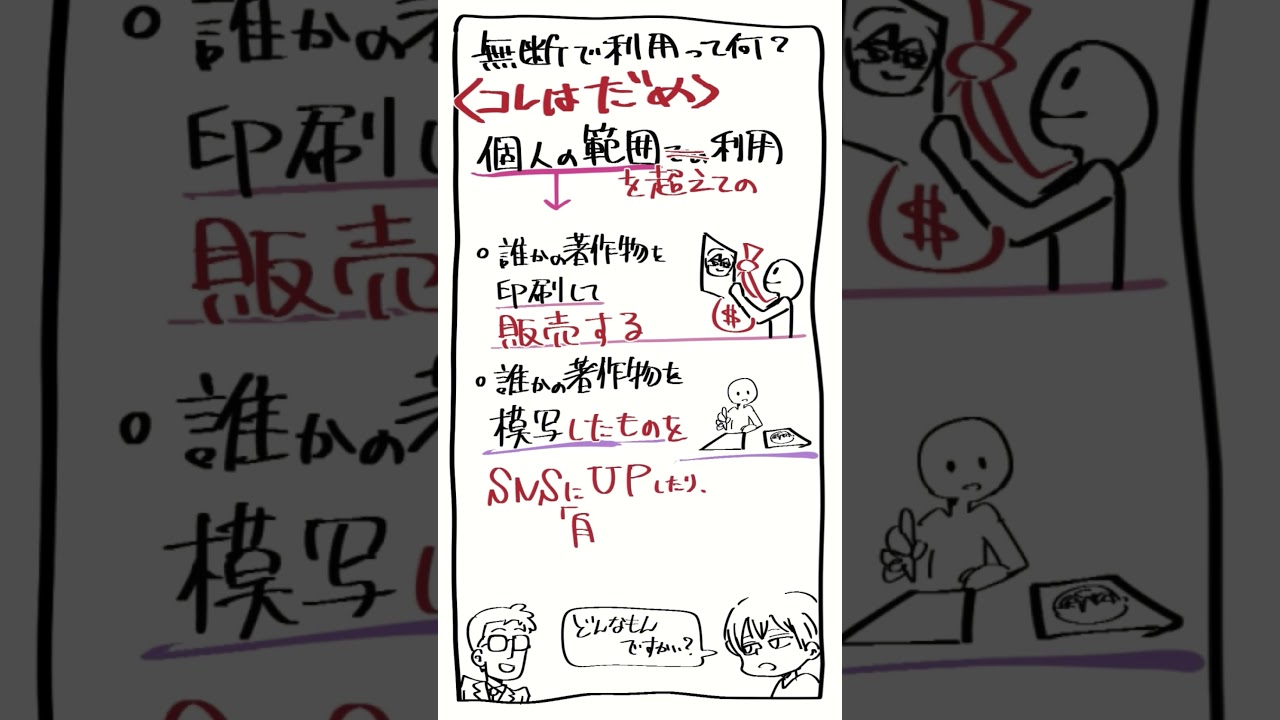 無断で利用って何？
〈コレはだめ〉
個人の範囲での利用
を超えての
○ 誰かの著作物を
印刷して
販売する
○ 誰かの著作物を
模写したものを
SNSにUPしたり、
「自
どんなもん
ですかい？